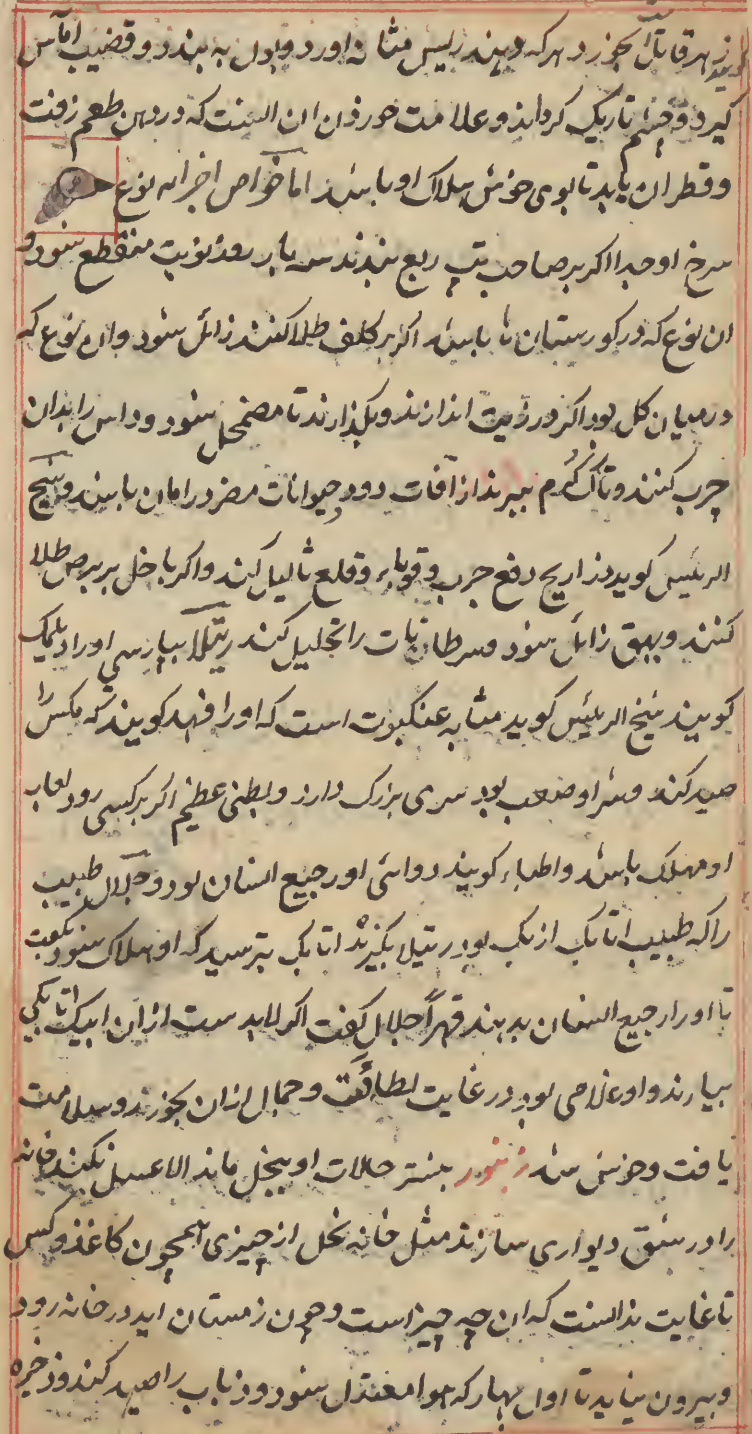 زهر قاتل بخورد هر که دهند ریش مثانه اورد و بول به بندد و قضیب اماس
کیرد و چشم تاریک کرداند و علامت خوردن ان انست که در دهن طعم زفت
و قطران یابد تا بوی خوش هلاک او باشد اما خواص اجزاء نوع
سرخ او جدا اکر بر صاحب تب ربع بندند سه بار روز نوبت منقطع شود و
ان نوع که در کورستان ها باشد اکر بر کلف طلا کنند زائل شود وان نوع که
درمیان کل بود اکر در زیت اندازند و بکذارند تا مضمحل شود و داس را بدان
چرب کنند و تاک کرم ببرند از آفات دود و حیوانات مضر در امان باشد و شیخ
الرئیس کوید ذراریح دفع جرب و قوباء و قلع ثالیل کند واکر با خل بر برص طلا
کنند و بهق زائل شود و سرطانات را تحلیل کند رتیلا بپارسی اورا دیلمک
کویند شیخ الرئیس کوید مشابه عنکبوت است که اورا فهد کویند که مکس را
صید کند و شر او صعب بود سری بزرک دارد و بطنی عظیم اکر بر کسی رود لعاب
او مهلک باشد و اطباء کویند دوائی او رجیع انسان بود و جلال طبیب
را که طبیب اتابک ازبک بود رتیلا بکزید اتابک بترسید که او هلاک شود بکفت
تا اورا رجیع انسان بدهند قهراً جلال کفت اکر لابدست ازان ایبک اتابکی
بیارند و او غلامی بود در غایت لطافت و جمال ازان بخورند و سلامت
یافت و خوش شد زنبور بیشتر حالات او بنحل ماند الا عسل نکند خانه
را در شق دیواری سازند مثل خانه نحل از چیزی همچون کاغذ و کس
تا غایت ندانست که ان چه چیز است وچون زمستان اید در خانه رود
و بیرون نیاید تا اول بهار که هوا معتدل شود و ذباب را صید کند و ذخیره